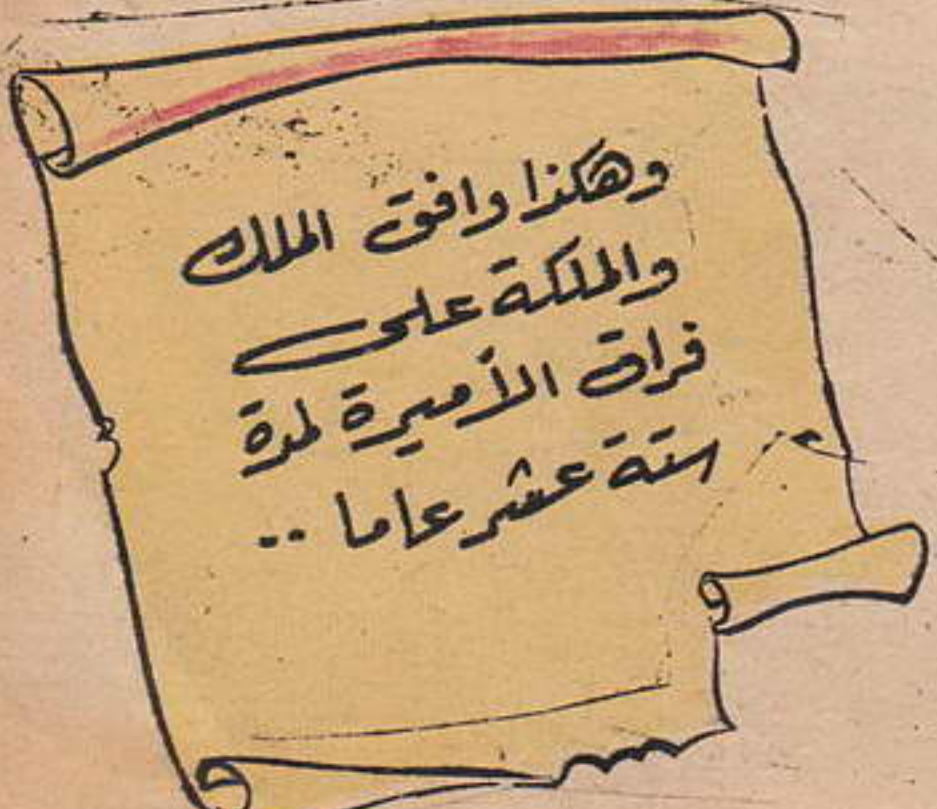 وهكذا وافق الملك
والملكة على
فراق الأميرة لمدة
ستة عشر عاما ..